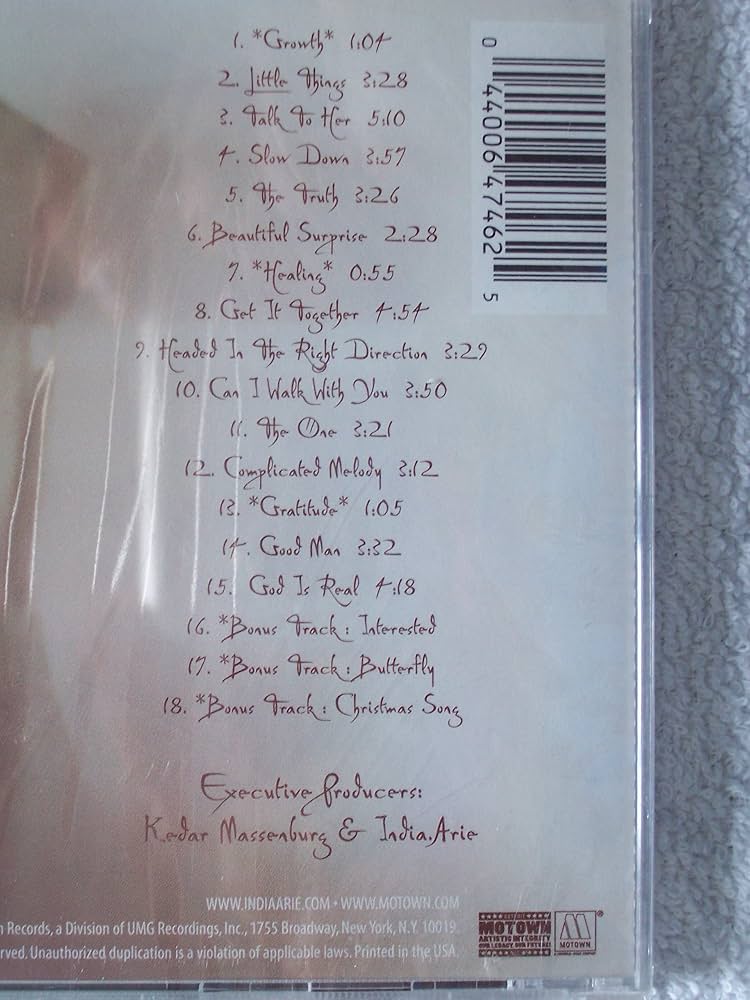 1. *Growth* 1:04
2. Little Things 3:28
3. Talk To Her 5:10
4. Slow Down 3:57
5. The Truth 3:26
6. Beautiful Surprise 2:28
7. *Healing* 0:55
8. Get It Together 4:54
9. Headed In The Right Direction 3:29
10. Can I Walk With You 3:50
11. The One 3:21
12. Complicated Melody 3:12
13. *Gratitude* 1:05
14. Good Man 3:32
15. God Is Real 4:18
16. *Bonus Track: Interested
17. *Bonus Track: Butterfly
18. *Bonus Track: Christmas Song
Executive Producers:
Kedar Massenburg & India.Arie
WWW.INDIAARIE.COM • WWW.MOTOWN.COM
n Records, a Division of UMG Recordings, Inc., 1755 Broadway, New York, N.Y. 10019.
rved. Unauthorized duplication is a violation of applicable laws. Printed in the USA.
0 44006 47462 5
MOTOWN
ARTISTIC INTEGRITY
M®
MOTOWN